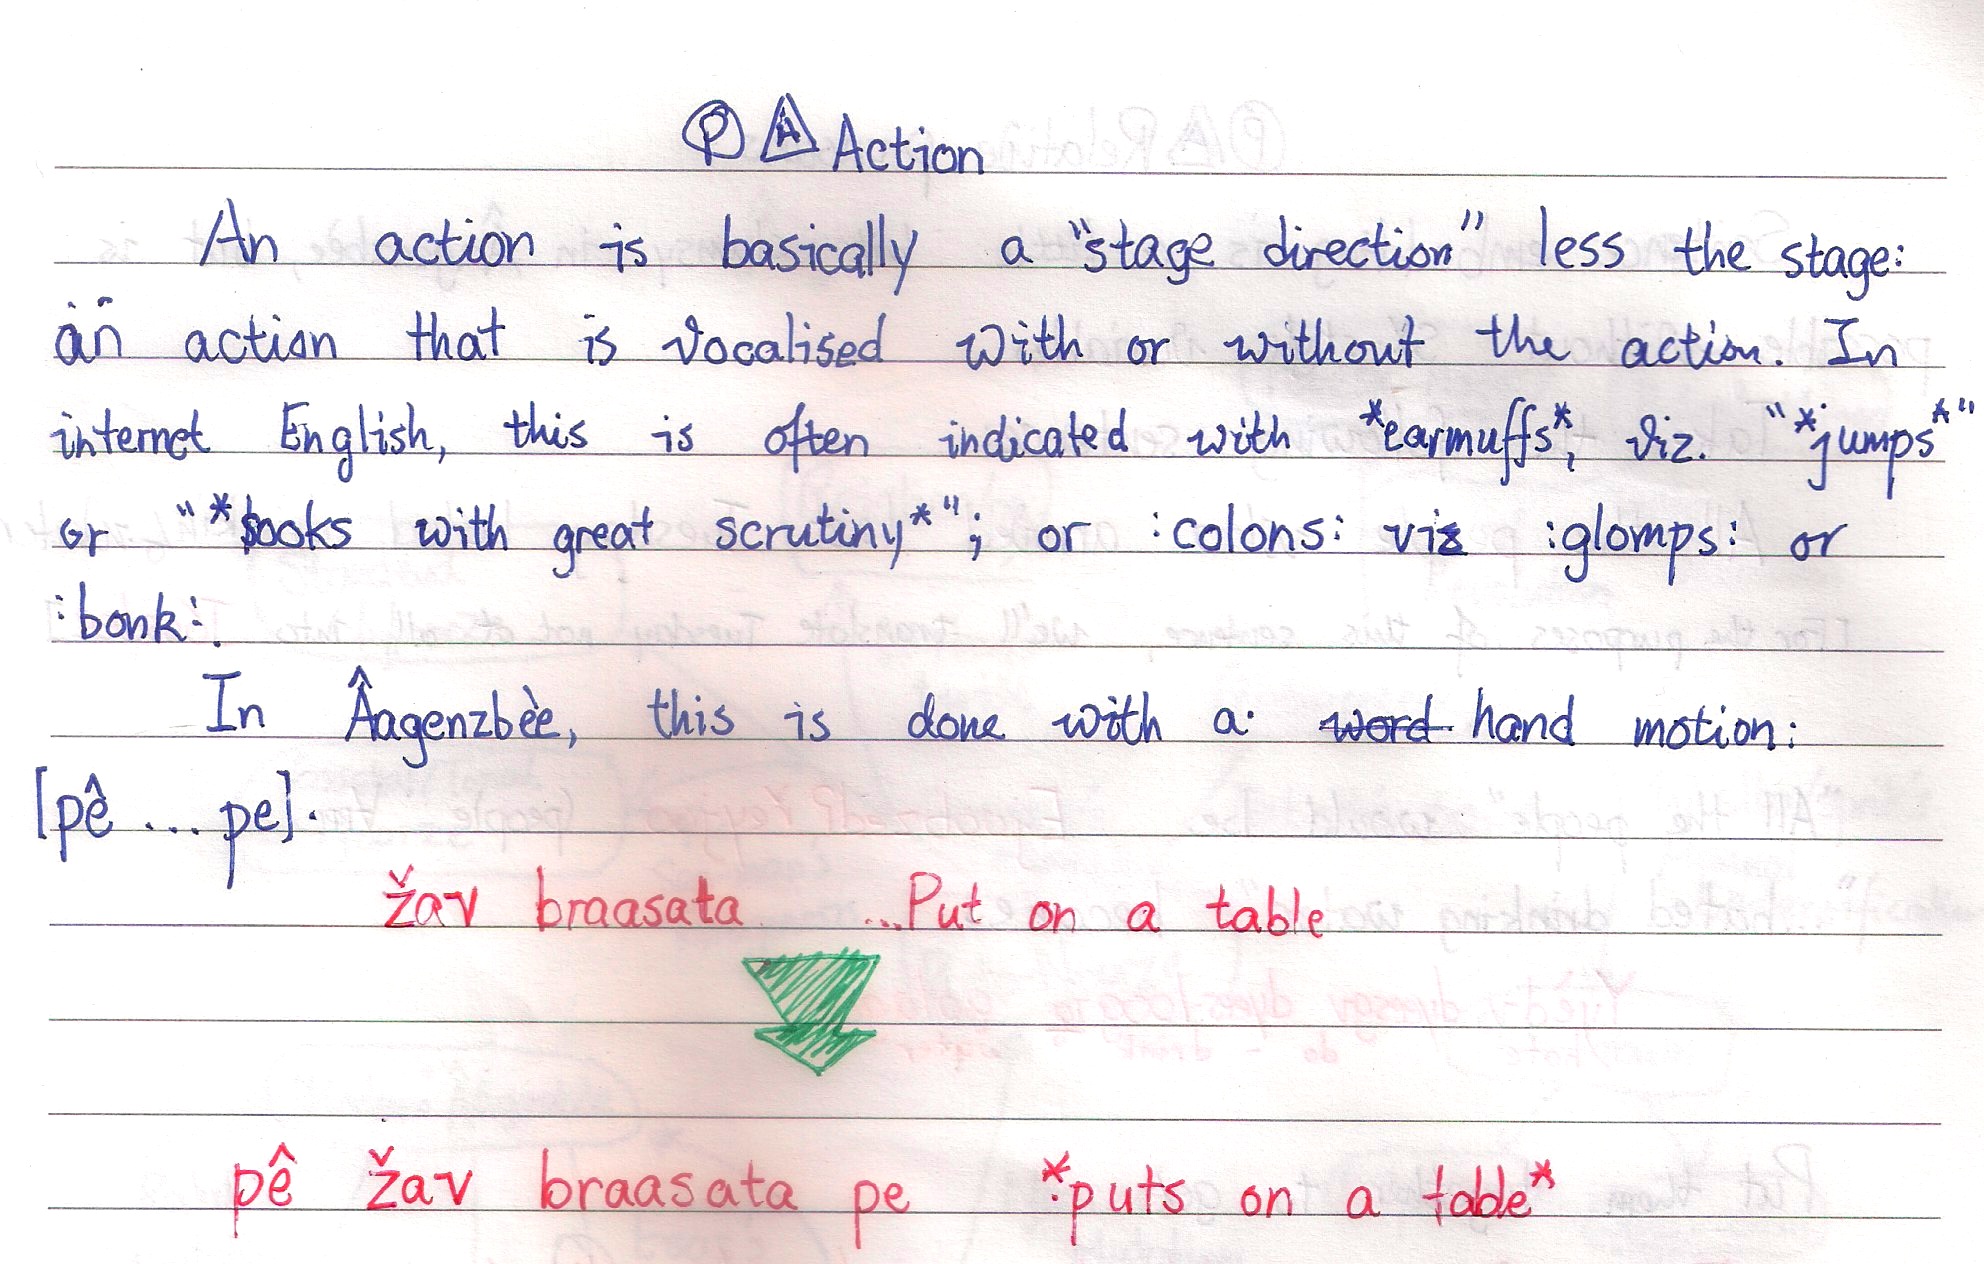 Ⓟ A Action
An action is basically a "stage direction" less the stage:
an action that is vocalised with or without the action. In
internet English, this is often indicated with *earmuffs*, viz. "*jumps*"
or "*looks with great scrutiny*"; or :colons: viz :glomps: or
:bonk:.
In Âagenzbèe, this is done with a word hand motion:
[pê ... pe].
žav braasata ...Put on a table
pê žav braasata pe *puts on a table*